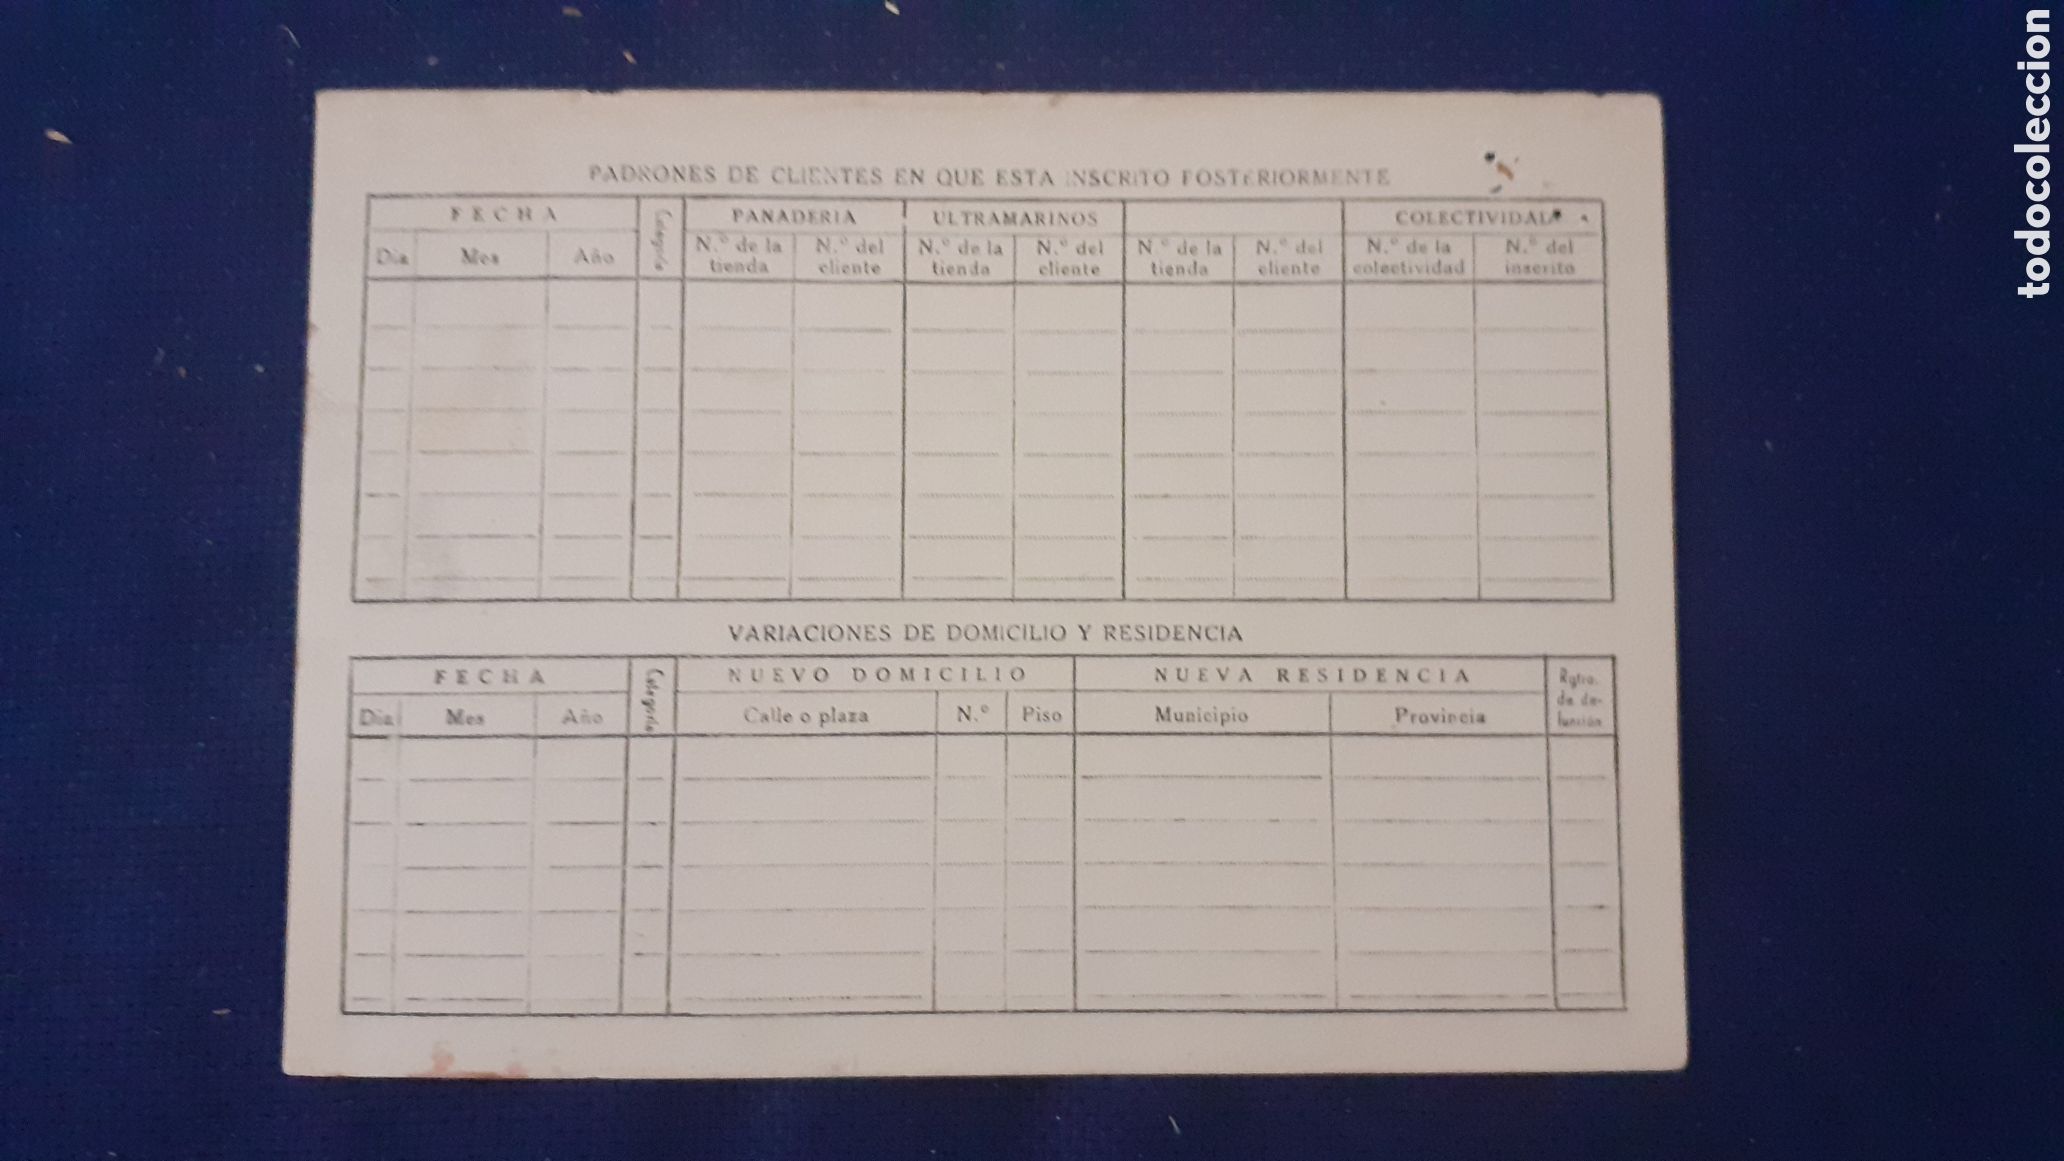 PADRONES DE CLIENTES EN QUE ESTA INSCRITO POSTERIORMENTE
FECHA Categoría PANADERIA ULTRAMARINOS COLECTIVIDAD
Día Mes Año N.º de la tienda N.º del cliente N.º de la tienda N.º del cliente N.º de la tienda N.º del cliente N.º de la colectividad N.º del inscrito
VARIACIONES DE DOMICILIO Y RESIDENCIA
FECHA Categoría NUEVO DOMICILIO NUEVA RESIDENCIA Rgtro. de de-función
Día Mes Año Calle o plaza N.º Piso Municipio Provincia
todocoleccion